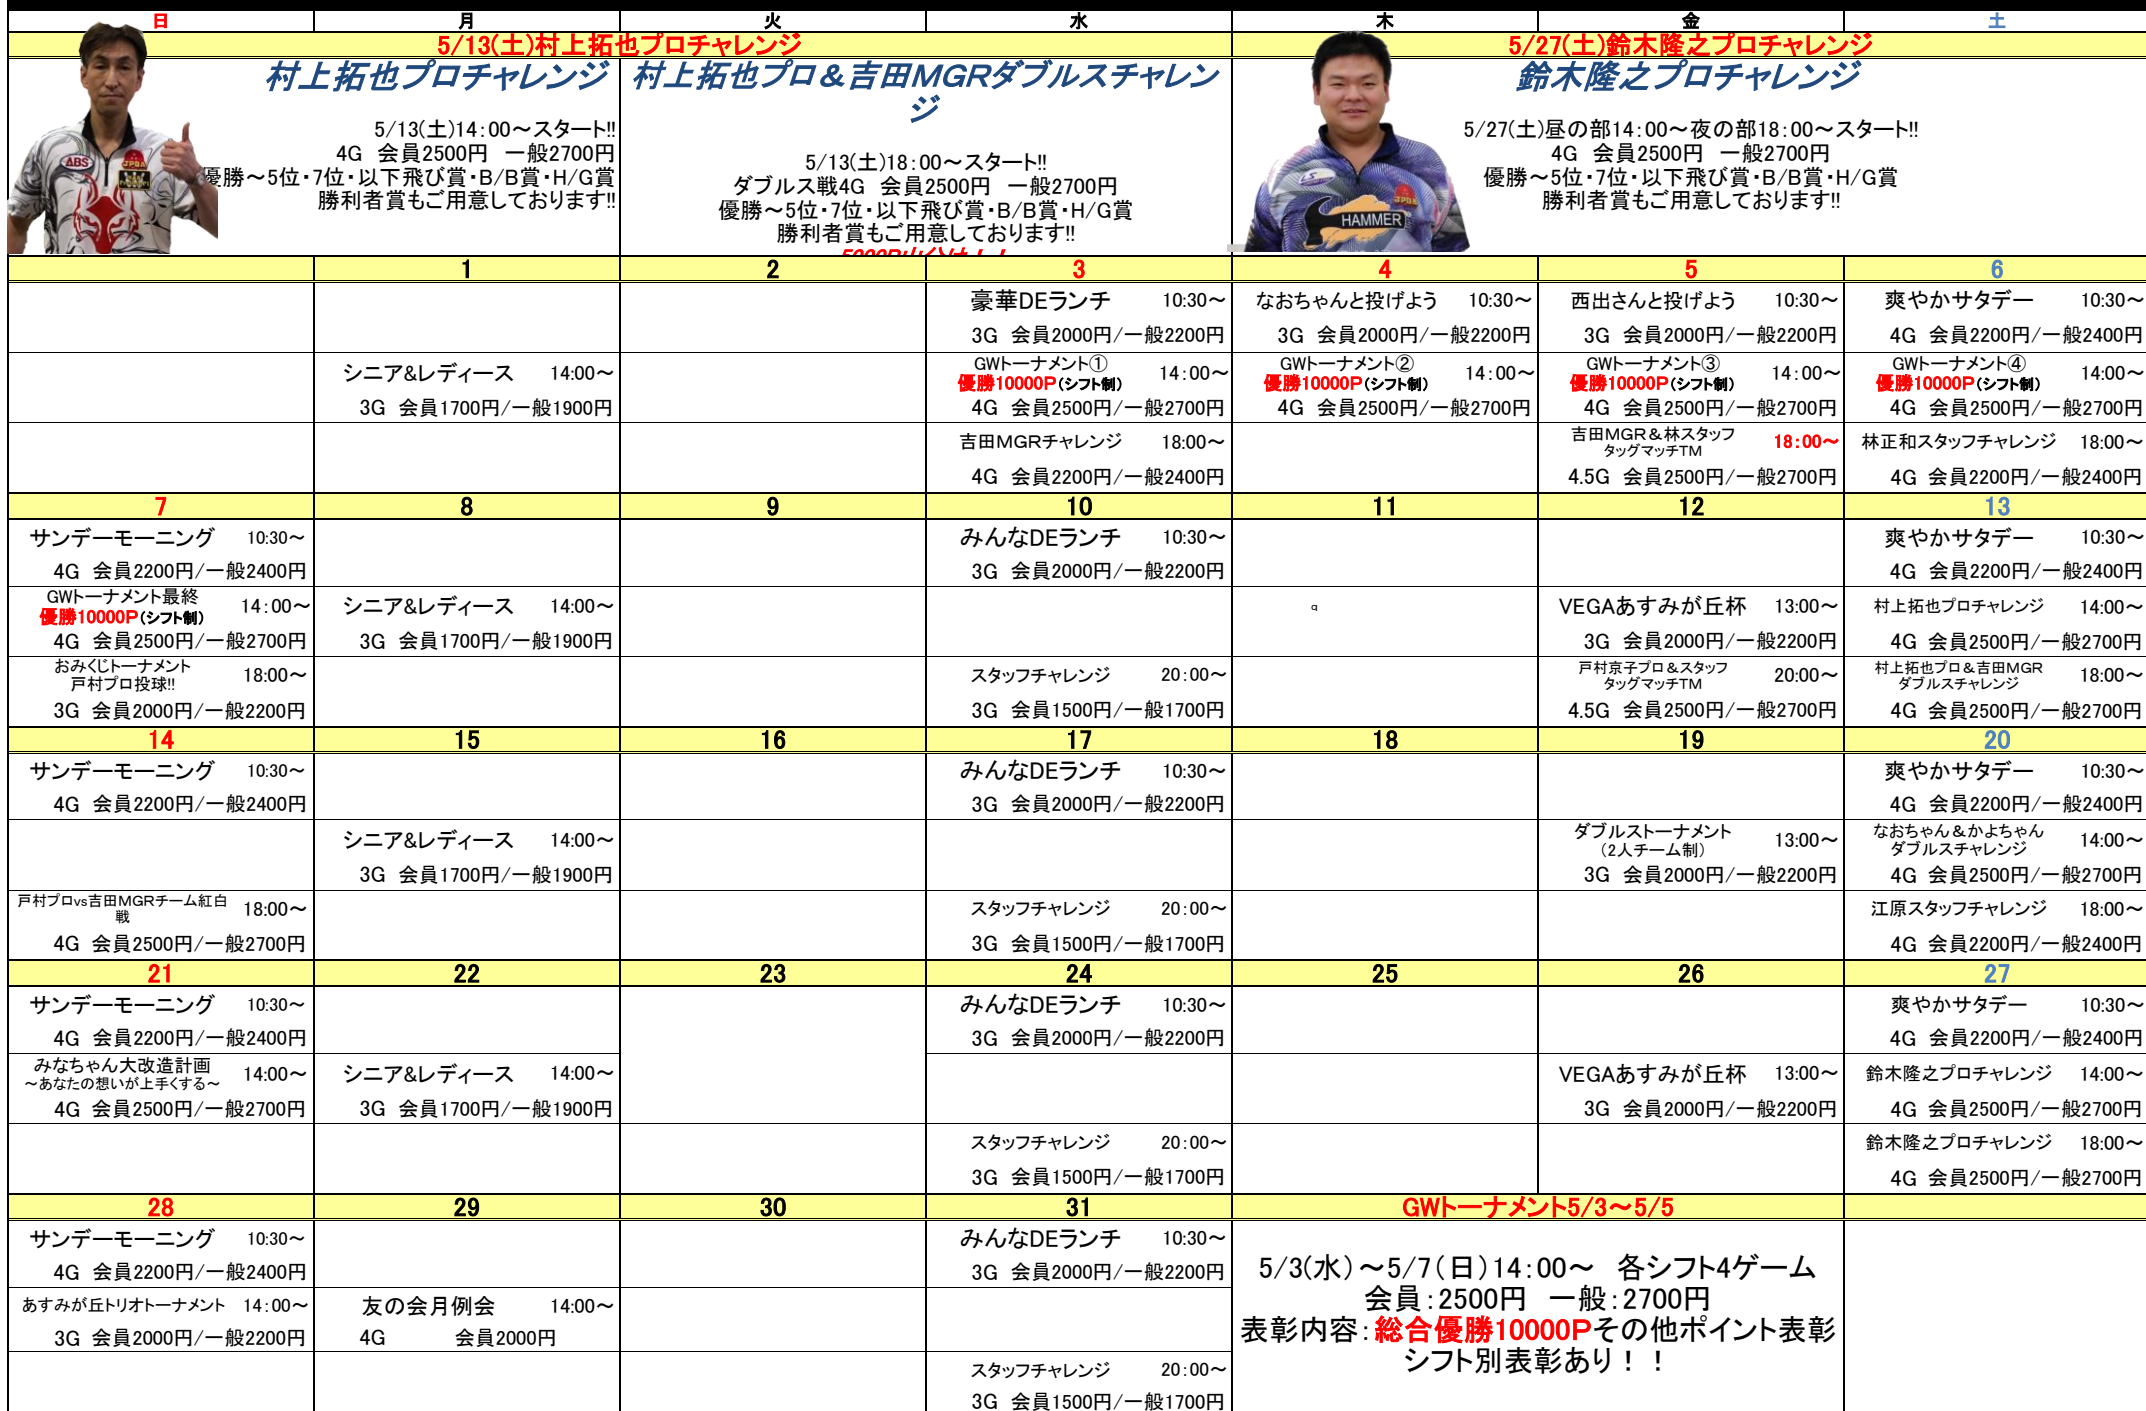 日 月 火 水 木 金 土
5/13(土)村上拓也プロチャレンジ
5/27(土)鈴木隆之プロチャレンジ
村上拓也プロチャレンジ
5/13(土)14:00～スタート!!
4G 会員2500円 一般2700円
優勝～5位・7位・以下飛び賞・B/B賞・H/G賞
勝利者賞もご用意しております!!
村上拓也プロ＆吉田MGRダブルスチャレン
ジ
5/13(土)18:00～スタート!!
ダブルス戦4G 会員2500円 一般2700円
優勝～5位・7位・以下飛び賞・B/B賞・H/G賞
勝利者賞もご用意しております!!
鈴木隆之プロチャレンジ
5/27(土)昼の部14:00～夜の部18:00～スタート!!
4G 会員2500円 一般2700円
優勝～5位・7位・以下飛び賞・B/B賞・H/G賞
勝利者賞もご用意しております!!
ABS
JPBA
HAMMER
1 2 3 4 5 6
豪華DEランチ 10:30～
3G 会員2000円/一般2200円
なおちゃんと投げよう 10:30～
3G 会員2000円/一般2200円
西出さんと投げよう 10:30～
3G 会員2000円/一般2200円
爽やかサタデー 10:30～
4G 会員2200円/一般2400円
シニア&レディース 14:00～
3G 会員1700円/一般1900円
GWトーナメント①
優勝10000P(シフト制) 14:00～
4G 会員2500円/一般2700円
GWトーナメント②
優勝10000P(シフト制) 14:00～
4G 会員2500円/一般2700円
GWトーナメント③
優勝10000P(シフト制) 14:00～
4G 会員2500円/一般2700円
GWトーナメント④
優勝10000P(シフト制) 14:00～
4G 会員2500円/一般2700円
吉田MGRチャレンジ 18:00～
4G 会員2200円/一般2400円
吉田MGR＆林スタッフ
タッグマッチTM 18:00～
4.5G 会員2500円/一般2700円
林正和スタッフチャレンジ 18:00～
4G 会員2200円/一般2400円
7 8 9 10 11 12 13
サンデーモーニング 10:30～
4G 会員2200円/一般2400円
みんなDEランチ 10:30～
3G 会員2000円/一般2200円
爽やかサタデー 10:30～
4G 会員2200円/一般2400円
GWトーナメント最終
優勝10000P(シフト制) 14:00～
4G 会員2500円/一般2700円
シニア&レディース 14:00～
3G 会員1700円/一般1900円
q
VEGAあすみが丘杯 13:00～
3G 会員2000円/一般2200円
村上拓也プロチャレンジ 14:00～
4G 会員2500円/一般2700円
おみくじトーナメント
戸村プロ投球!! 18:00～
3G 会員2000円/一般2200円
スタッフチャレンジ 20:00～
3G 会員1500円/一般1700円
戸村京子プロ＆スタッフ
タッグマッチTM 20:00～
4.5G 会員2500円/一般2700円
村上拓也プロ＆吉田MGR
ダブルスチャレンジ 18:00～
4G 会員2500円/一般2700円
14 15 16 17 18 19 20
サンデーモーニング 10:30～
4G 会員2200円/一般2400円
みんなDEランチ 10:30～
3G 会員2000円/一般2200円
爽やかサタデー 10:30～
4G 会員2200円/一般2400円
シニア&レディース 14:00～
3G 会員1700円/一般1900円
ダブルストーナメント
（2人チーム制） 13:00～
3G 会員2000円/一般2200円
なおちゃん＆かよちゃん
ダブルスチャレンジ 14:00～
4G 会員2500円/一般2700円
戸村プロvs吉田MGRチーム紅白
戦 18:00～
4G 会員2500円/一般2700円
スタッフチャレンジ 20:00～
3G 会員1500円/一般1700円
江原スタッフチャレンジ 18:00～
4G 会員2200円/一般2400円
21 22 23 24 25 26 27
サンデーモーニング 10:30～
4G 会員2200円/一般2400円
みんなDEランチ 10:30～
3G 会員2000円/一般2200円
爽やかサタデー 10:30～
4G 会員2200円/一般2400円
みなちゃん大改造計画
～あなたの想いが上手くする～ 14:00～
4G 会員2500円/一般2700円
シニア&レディース 14:00～
3G 会員1700円/一般1900円
VEGAあすみが丘杯 13:00～
3G 会員2000円/一般2200円
鈴木隆之プロチャレンジ 14:00～
4G 会員2500円/一般2700円
スタッフチャレンジ 20:00～
3G 会員1500円/一般1700円
鈴木隆之プロチャレンジ 18:00～
4G 会員2500円/一般2700円
28 29 30 31 GWトーナメント5/3～5/5
サンデーモーニング 10:30～
4G 会員2200円/一般2400円
みんなDEランチ 10:30～
3G 会員2000円/一般2200円
あすみが丘トリオトーナメント 14:00～
3G 会員2000円/一般2200円
友の会月例会 14:00～
4G 会員2000円
スタッフチャレンジ 20:00～
3G 会員1500円/一般1700円
5/3(水)～5/7(日)14:00～ 各シフト4ゲーム
会員:2500円 一般:2700円
表彰内容:総合優勝10000Pその他ポイント表彰
シフト別表彰あり！！